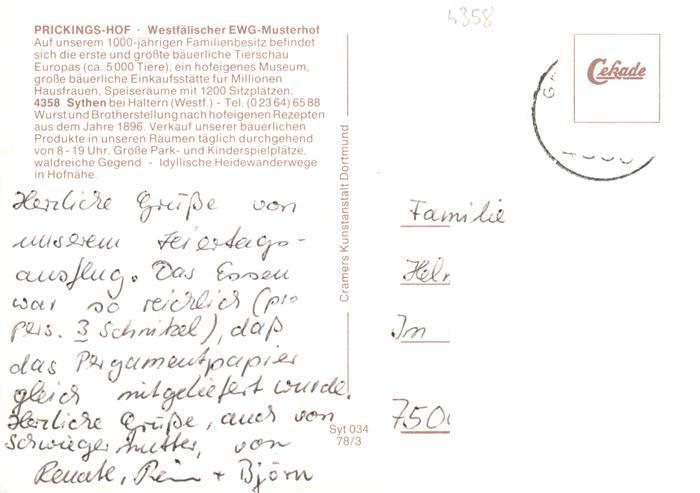 4358
PRICKINGS-HOF · Westfälischer EWG-Musterhof
Auf unserem 1000-jährigen Familienbesitz befindet
sich die erste und größte bäuerliche Tierschau
Europas (ca. 5000 Tiere), ein hofeigenes Museum,
große bäuerliche Einkaufsstätte für Millionen
Hausfrauen, Speiseräume mit 1200 Sitzplätzen.
4358 Sythen bei Haltern (Westf.) - Tel. (0 23 64) 65 88
Wurst und Brotherstellung nach hofeigenen Rezepten
aus dem Jahre 1896. Verkauf unserer bäuerlichen
Produkte in unseren Räumen täglich durchgehend
von 8 - 19 Uhr. Große Park- und Kinderspielplätze,
waldreiche Gegend - Idyllische Heidewanderwege
in Hofnähe.
Herzliche Grüße von
unserem Feiertags-
ausflug. Das Essen
war so reichlich (pro
Pers. 3 Schnitzel), daß
das Pergamentpapier
gleich mitgeliefert wurde.
Herzliche Grüße, auch von
Schwiegermutter, von
Renate, + Björn
Cramers Kunstanstalt Dortmund
Syt 034
78/3
Cekade
Familie
Hel
Im
750